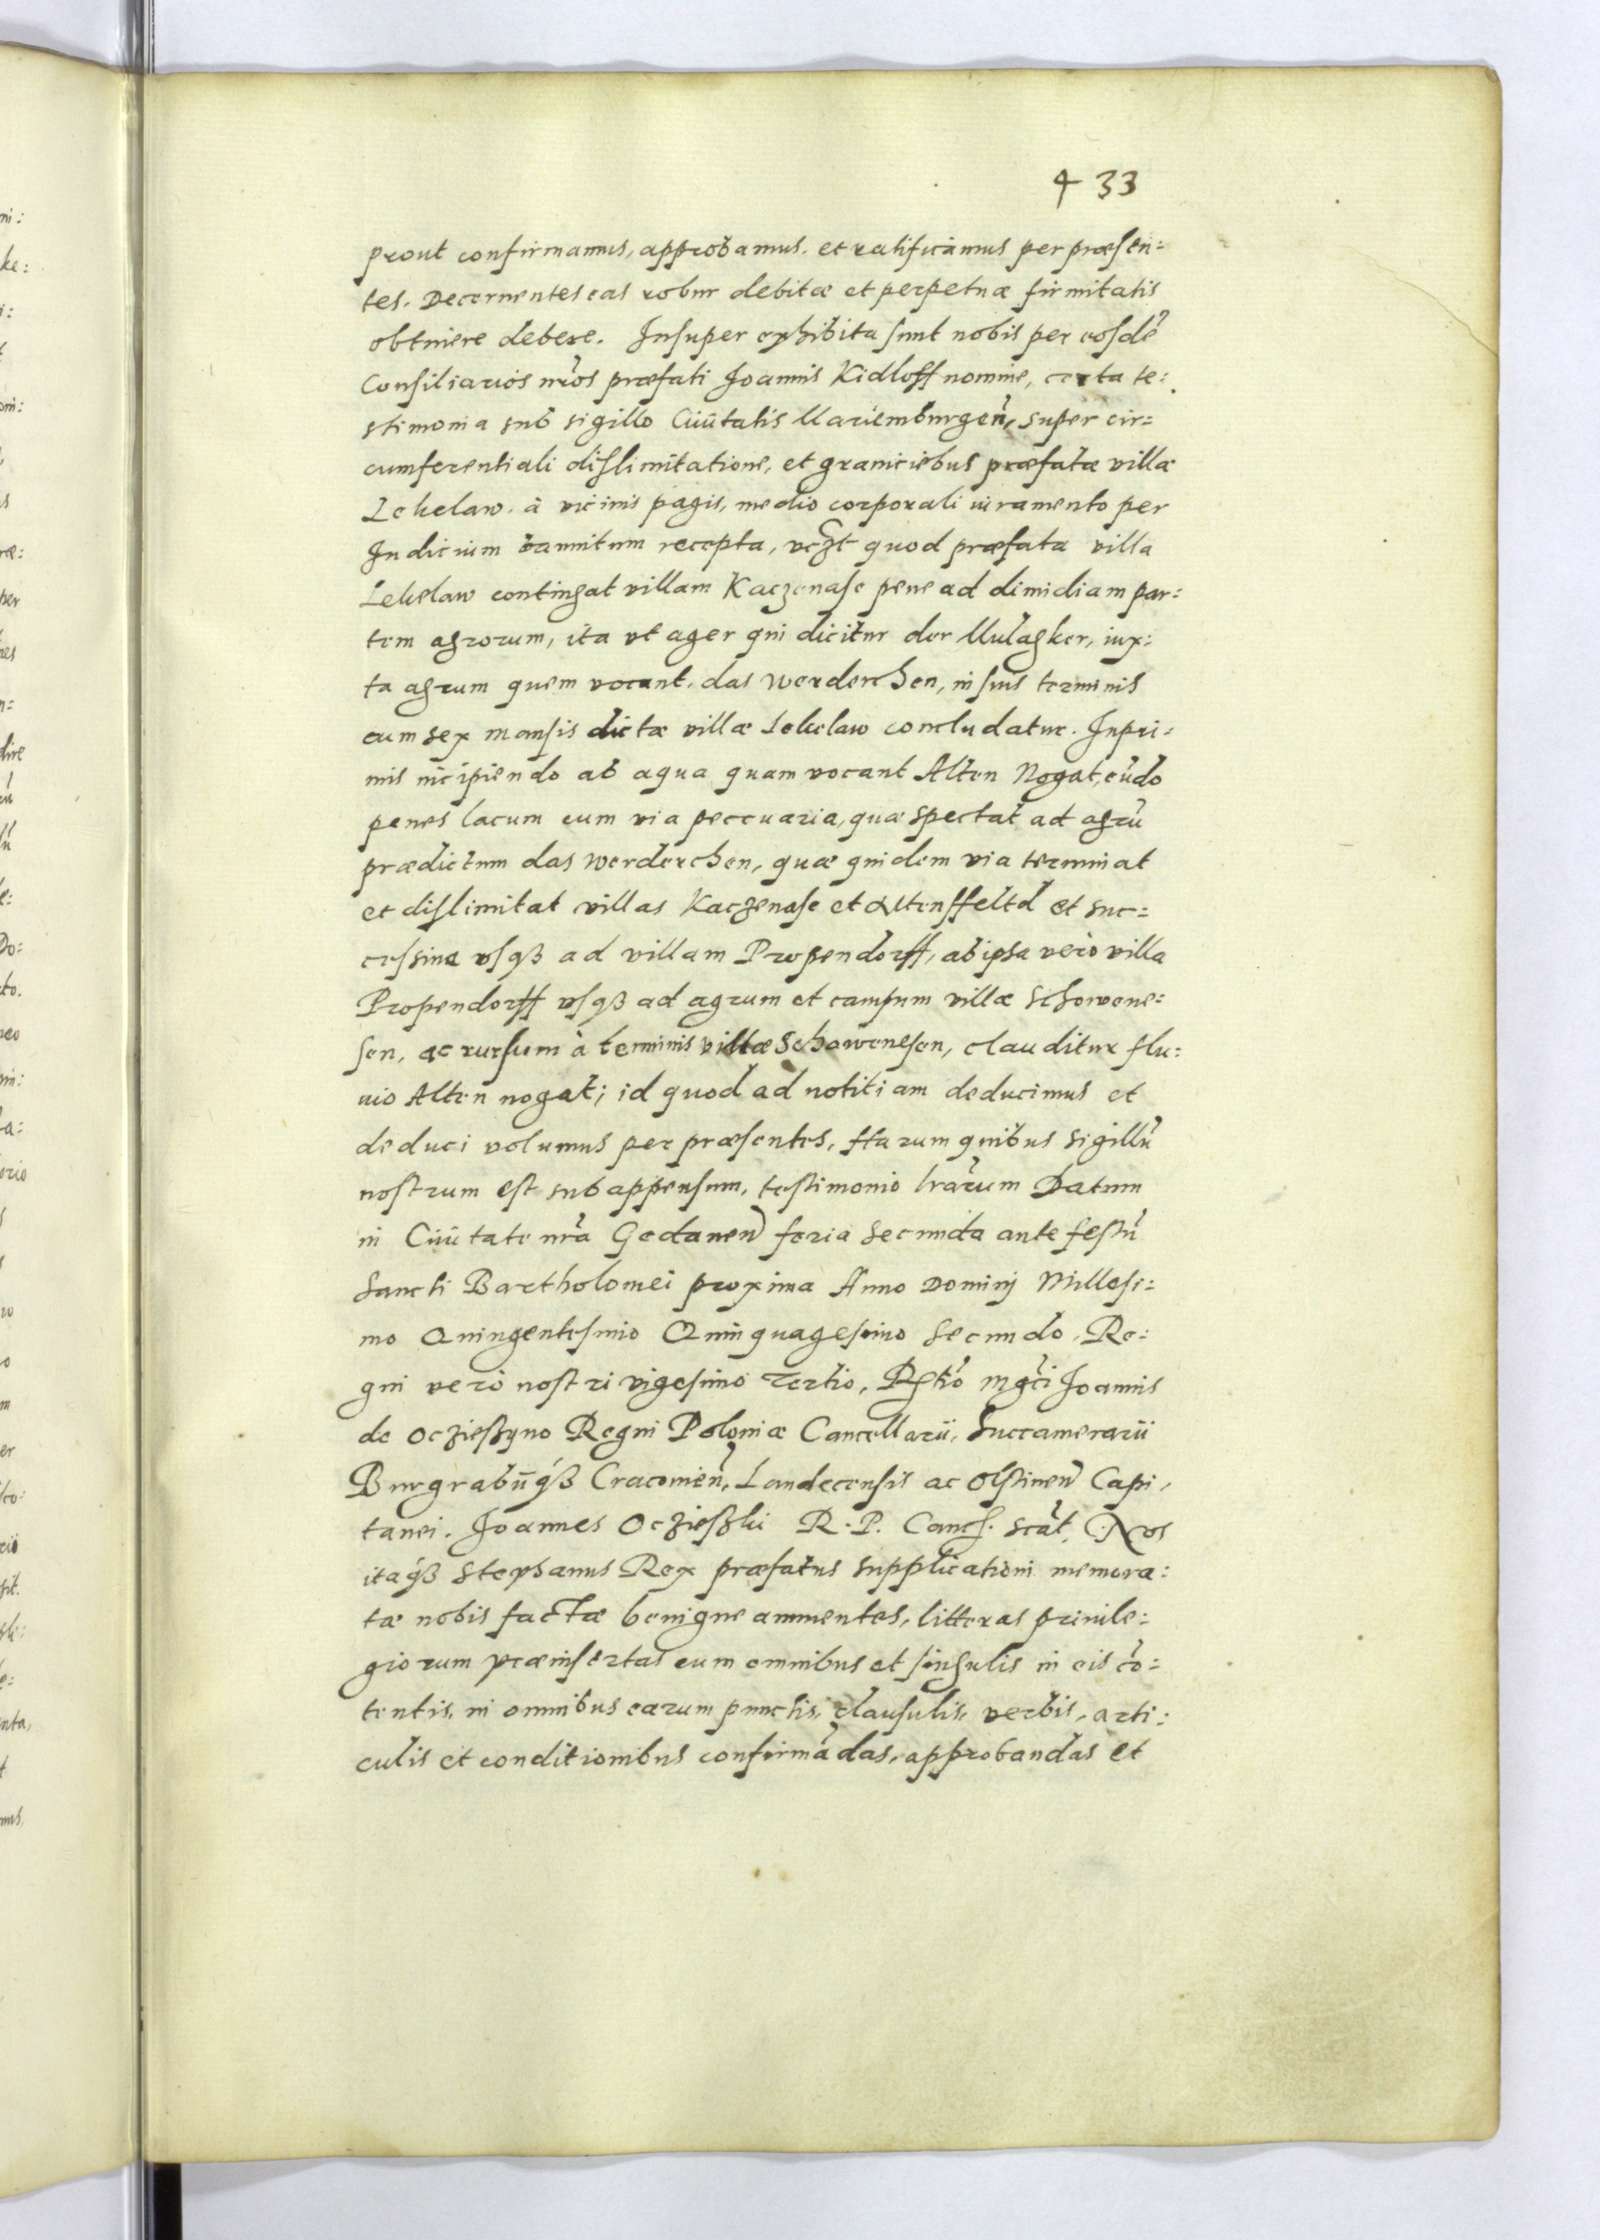 433
prout confirmamus, approbamus, et ratificamus per præsen:
tes. Decernentes eas robur debitæ et perpetuæ firmitatis
obtinere debere. Insuper exhibita sunt nobis per eosdẽ
Consiliarios nr̃os præfati Joannis Kidloff nomine, certa te:
stimonia sub sigillo Ciuitatis Mariemburgeñ, super cir:
cumferentiali dislimitatione, et graniciebus præfatæ villæ
Lekelaw, à vicinis pagis, medio corporali iuramento per
Iudicium bannitum recepta, vczt quod præfata villa
Lekelaw contingat villam Kaczenase pene ad dimidiam par:
tem agrorum, ita vt ager qui dicitur der Mulagker, iux:
ta agrum quem vocant, das werderchen, in suis terminis
cum sex mansis dictæ villæ Lekelaw concludatur. Inpri:
mis incipiendo ab aqua quam vocant Alten Nogat, eũdo
penes lacum cum via peccuaria, quæ spectat ad agrũ
prædictum das werderchen, quæ quidem via terminat
et dislimitat villas Kaczenase et Altenffeltd et suc:
cessiue vsqß ad villam Propendorff, ab ipsa verò villa
Propendorff vsqß ad agrum et campum villæ Schowene:
sen, ac rursum à terminis villæ Schawenesen, clauditur flu:
uio Alten nogat; id quod ad notitiam deducimus et
deduci volumus per præsentes, Harum quibus sigillũ
nostrum est subappensum, testimonio lrãrum Datum
in Ciuitate nr̃a Gedaneñ feria secunda ante festũ
Sancti Bartholomei proxima Anno Dominj Millesi:
mo Quingentesimo Quinquagesimo Secundo, Re:
gni verò nostri vigesimo Tertio, Rltiõ Mgc̃i Joannis
de Oczieszyno Regni Poloniæ Cancellarii, Succamerarii
Burgrabiiqß Cracouieñ, Landecensis ac Olstineñ Capi,
tanei. Joannes Oczieszki R. P. Canc. scãt. Nos
itaqß Stephanus Rex præfatus supplicationi memora:
tæ nobis factæ benigne annuentes, litteras priuile:
giorum præinsertas cum omnibus et singulis in eis cõ:
tentis, in omnibus earum punctis, clausulis, verbis, arti:
culis et conditionibus confirmãdas, approbandas et